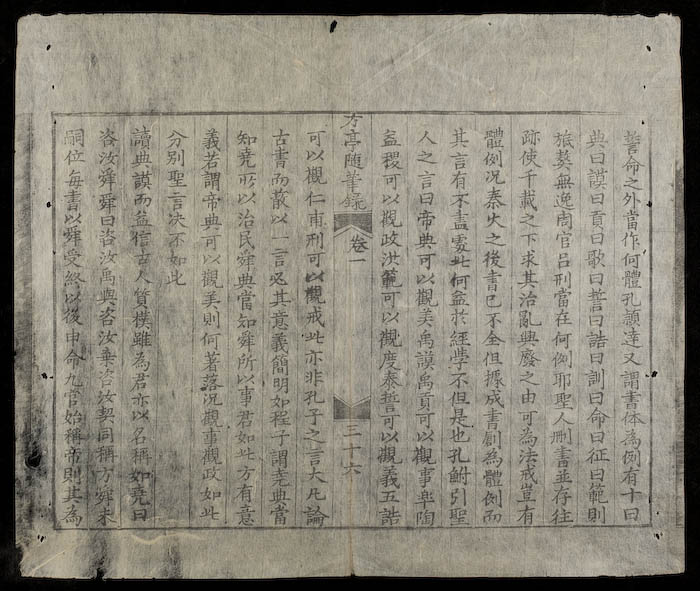 誓命之外當作何體孔頴達又謂書体為例有十曰
典曰謨曰貢曰歌曰誓曰誥曰訓曰命曰征曰範則
旅獒無逸周官呂刑當在何例耶聖人刪書並存往
跡使千載之下求其治亂興廢之由可為法戒豈有
體例况秦火之後書已不全但據成書創為體例而
其言有不盡處此何益於經學不但是也孔鮒引聖
人之言曰帝典可以觀美禹謨禹貢可以觀事皐陶
益稷可以觀政洪範可以觀度泰誓可以觀義五誥
方亭随筆錄
卷一
三十六
可以觀仁甫刑可以觀戒此亦非孔子之言大凡論
古書而蔽以一言必其意義簡明如程子謂堯典當
知堯所以治民舜典當知舜所以事君如此方有意
義若謂帝典可以觀美則何著落况觀事觀政如此
分別聖言决不如此
讀典謨而益信古人質樸雖為君亦以名稱如堯曰
咨汝舜舜曰咨汝禹與咨汝棄咨汝契同稱方舜未
嗣位每書以舜受終以後申命九官始稱帝則其為